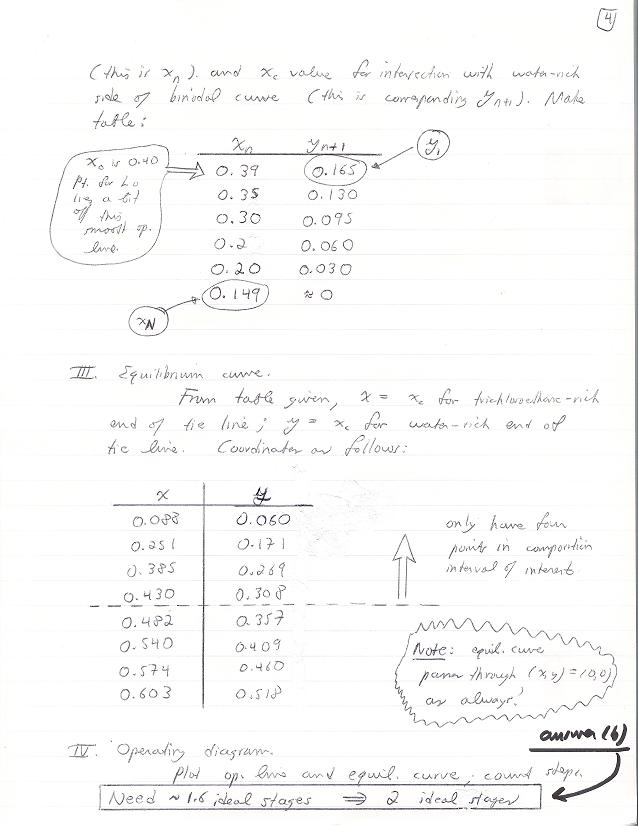 4
(this is xn). and xc value for intersection with water-rich
side of binodal curve (this is corresponding yn+1). Make
table:
xn yn+1
y1
0.39 0.165
0.35 0.130
0.30 0.095
0.2 0.060
0.20 0.030
0.149 ≈ 0
x0 is 0.40
pt. for L0
lies a bit
off this
smooth op.
line.
xN
III. Equilibrium curve.
From table given, x = xc for trichloroethane-rich
end of tie line; y = xc for water-rich end of
tie line. Coordinates as follows:
x y
0.088 0.060
0.251 0.171
0.385 0.269
0.430 0.308
0.482 0.357
0.540 0.409
0.574 0.460
0.603 0.518
only have four
points in composition
interval of interest.
Note: equil. curve
passes through (x,y)=(0,0)
as always!
answer (b)
IV. Operating diagram.
Plot op. line and equil. curve; count steps.
Need ~1.6 ideal stages ⇒ 2 ideal stages